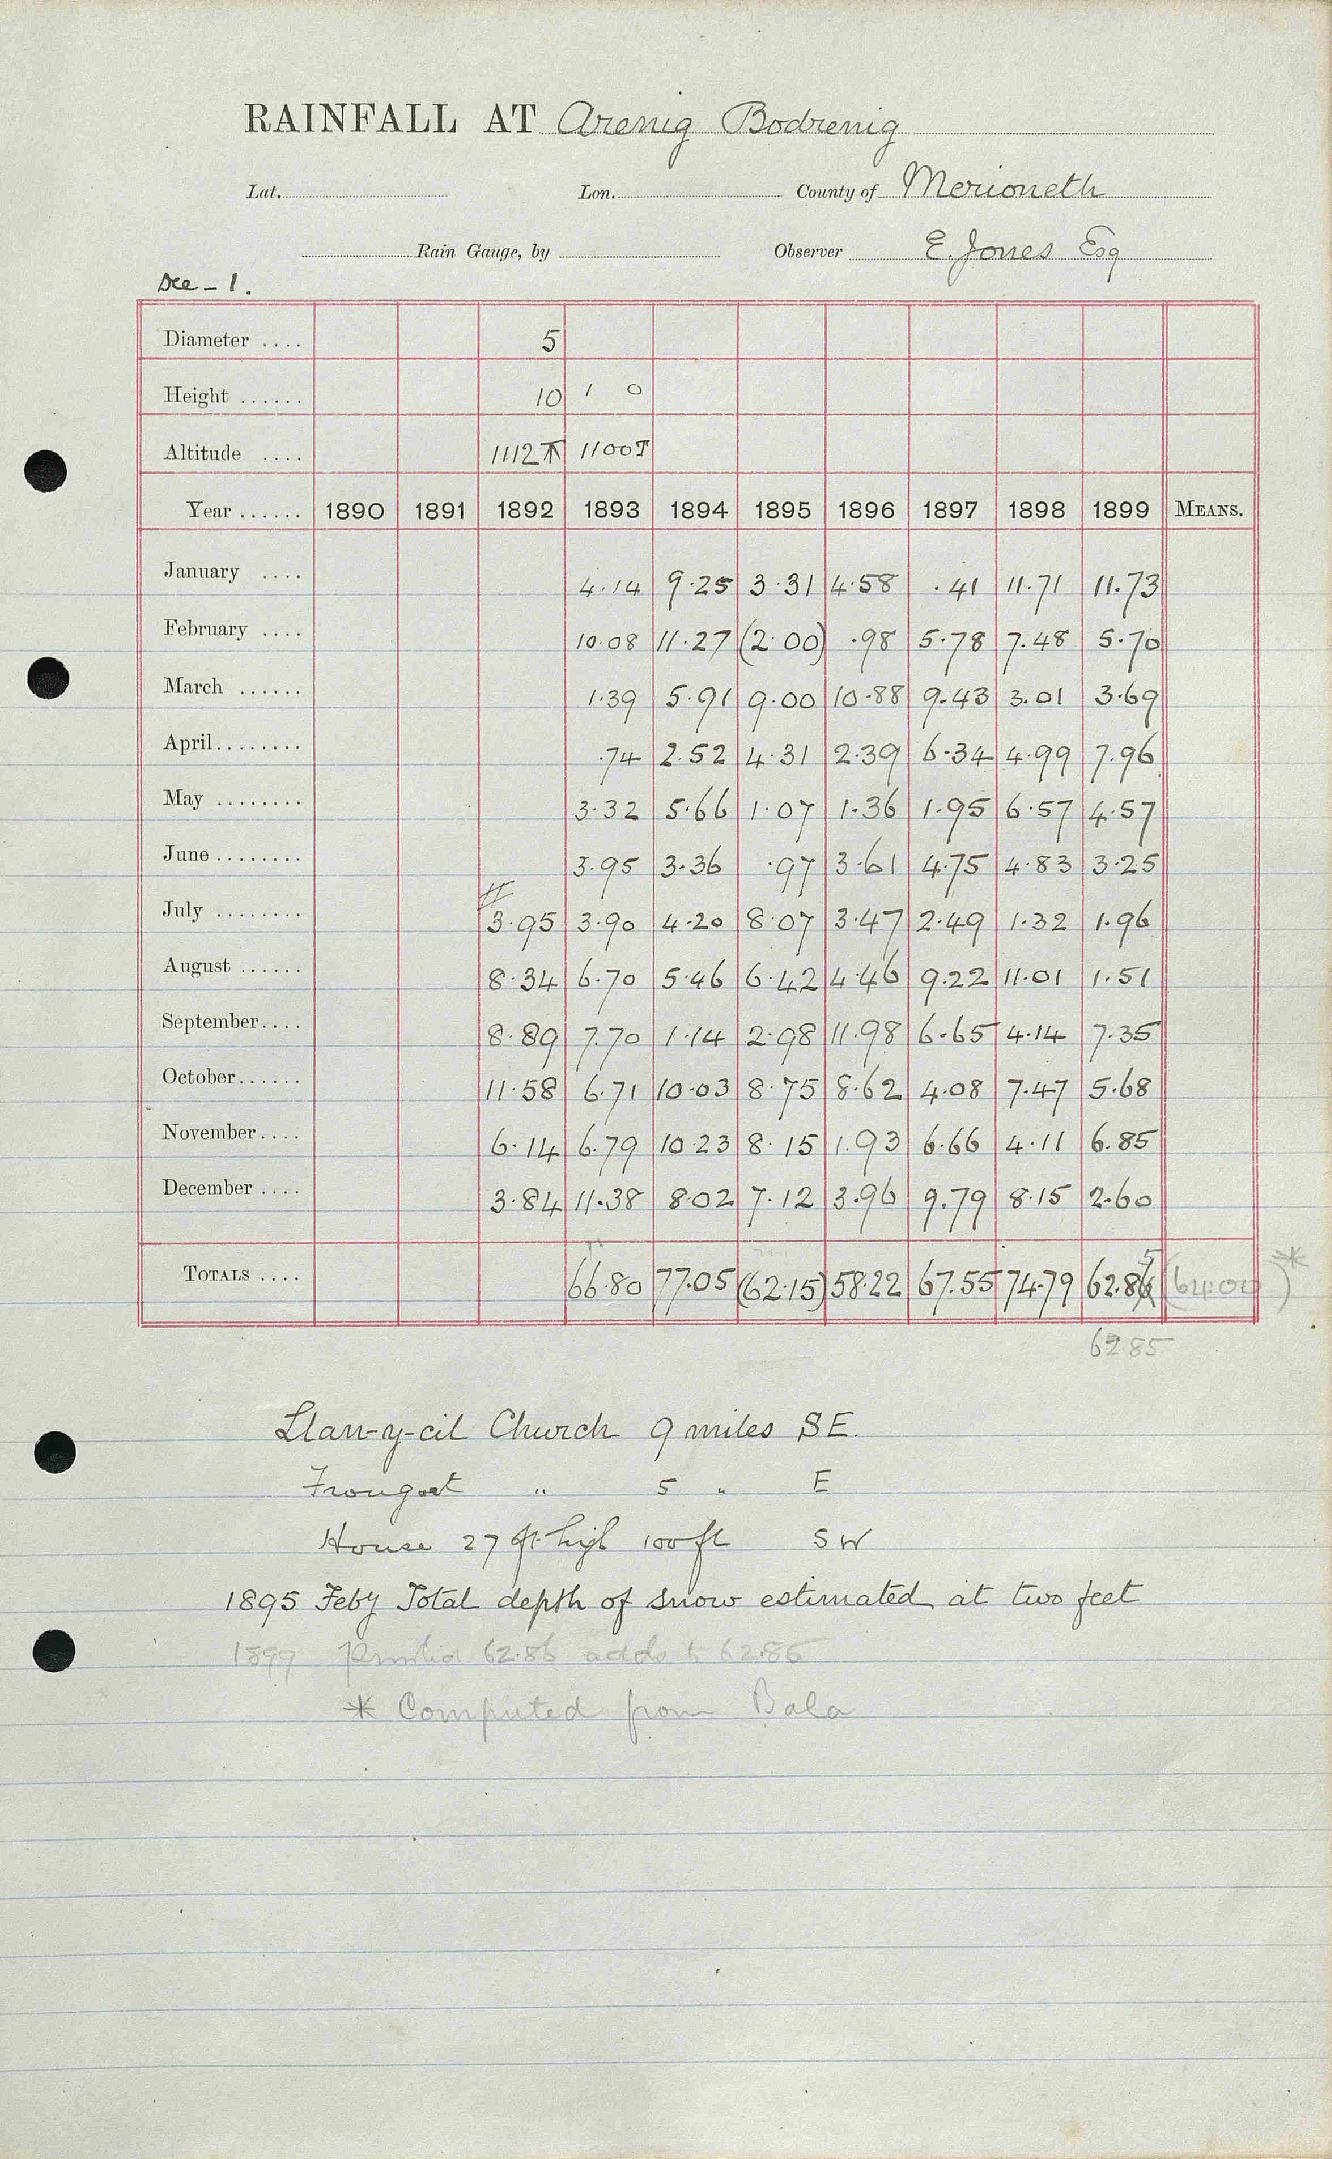 RAINFALL AT Arenig Bodrenig
Lat. Lon. County of Merioneth
Rain Gauge, by Observer E. Jones Esq
Dec - 1.
Diameter .... 5
Height ...... 10 1 0
Altitude .... 1112 T 1100 T
Year ...... 1890 1891 1892 1893 1894 1895 1896 1897 1898 1899 MEANS.
January .... 4.14 9.25 3.31 4.58 .41 11.71 11.73
February .... 10.08 11.27 (2.00) .98 5.78 7.48 5.70
March ...... 1.39 5.91 9.00 10.88 9.43 3.01 3.69
April ........ .74 2.52 4.31 2.39 6.34 4.99 7.96
May ........ 3.32 5.66 1.07 1.36 1.95 6.57 4.57
June ........ 3.95 3.36 .97 3.61 4.75 4.83 3.25
July ........ 3.95 3.90 4.20 8.07 3.47 2.49 1.32 1.96
August ...... 8.34 6.70 5.46 6.42 4.46 9.22 11.01 1.51
September .... 8.89 7.70 1.14 2.98 11.98 6.65 4.14 7.35
October ...... 11.58 6.71 10.03 8.75 8.62 4.08 7.47 5.68
November .... 6.14 6.79 10.23 8.15 1.93 6.66 4.11 6.85
December .... 3.84 11.38 8.02 7.12 3.96 9.79 8.15 2.60
TOTALS .... 66.80 77.05 (62.15) 58.22 67.55 74.79 62.86 5 (64.00)*
62.85
Llan-y-cil Church 9 miles SE.
Frongoet " 5 " E
House 27 ft. high 100 ft SW
1895 Feby Total depth of snow estimated at two feet
1899 Printed 62.86 adds to 62.85
* Computed from Bala